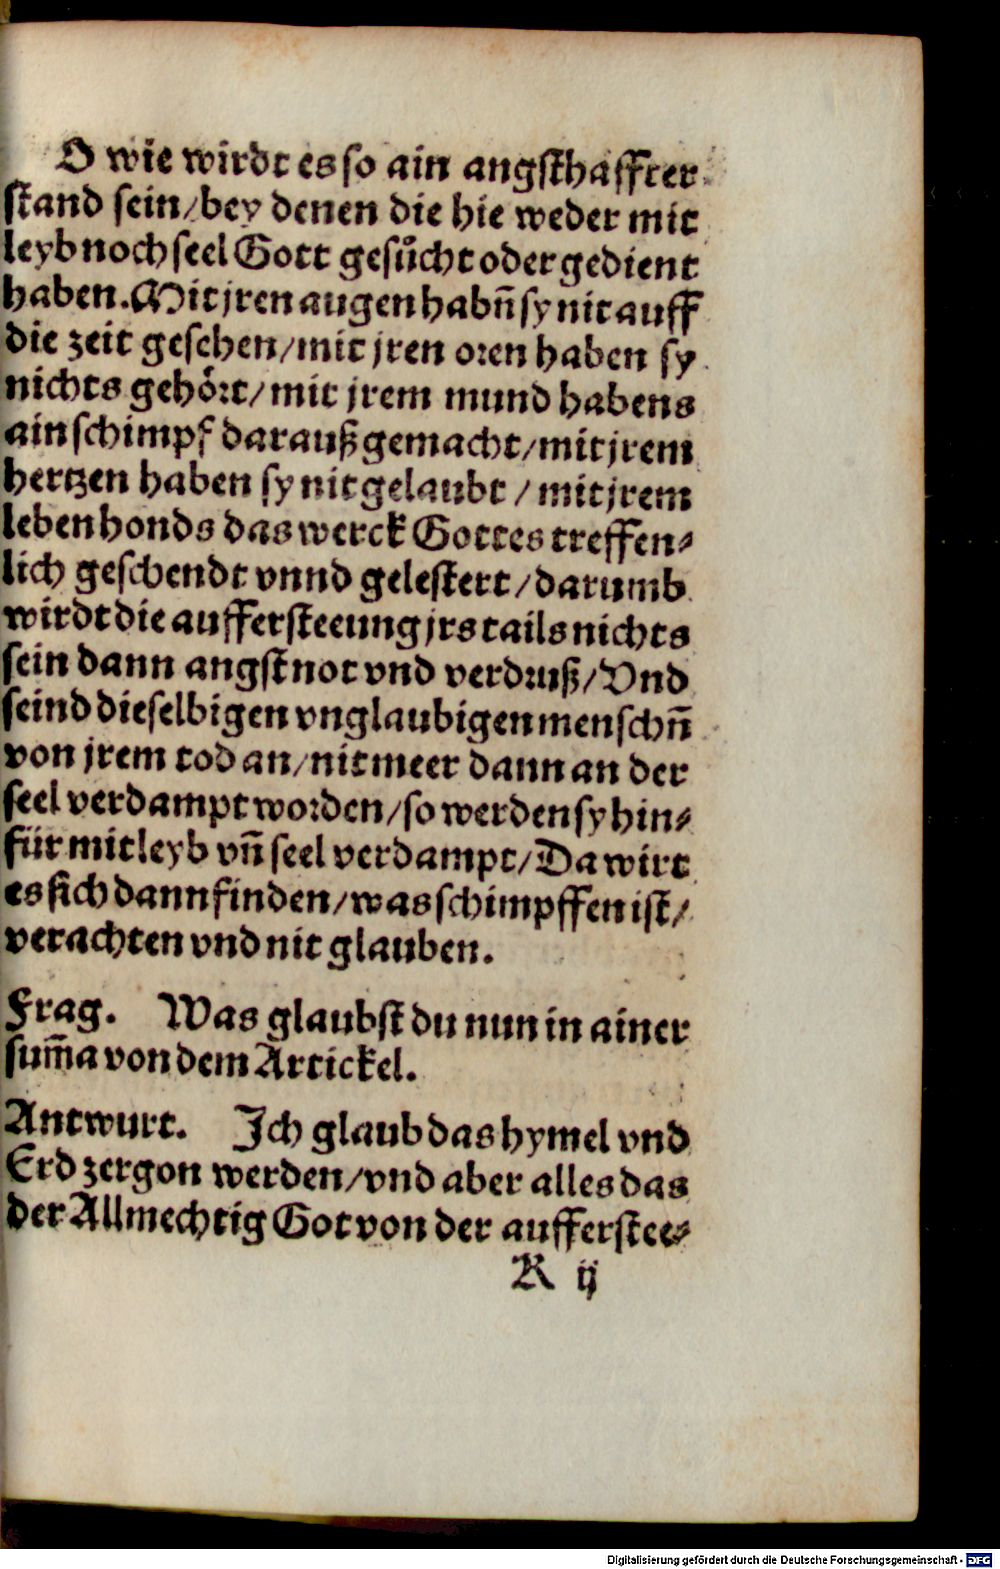 O wie wirdt es so ain angsthaffter
stand sein/bey denen die hie weder mit
leyb noch seel Gott gesuͤcht oder gedient
haben. Mit jren augen habñ sy nit auff
die zeit gesehen/mit jren oren haben sy
nichts gehoͤrt/mit jrem mund habens
ain schimpf darauß gemacht/mit jrem
hertzen haben sy nit gelaubt/mit jrem
leben honds das werck Gottes treffen⸗
lich geschendt vnnd gelestert/darumb
wirdt die aufferstee​ung jrs tails nichts
sein dann angst not vnd verdruß/Vnd
seind dieselbigen vnglaubigen menschñ
von jrem tod an/nit meer dann an der
seel verdampt worden/so werden sy hin⸗
für mit leyb vñ seel verdampt/Da wirt
es sich dann finden/was schimpffen ist/
verachten vnd nit glauben.
Frag. Was glaubst du nun in ainer
sum̃a von dem Artickel.
Antwurt. Ich glaub das hymel vnd
Erd zergon werden/vnd aber alles das
der Allmechtig Got von der aufferstee⸗
K ij
Digitalisierung gefördert durch die Deutsche Forschungsgemeinschaft - DFG